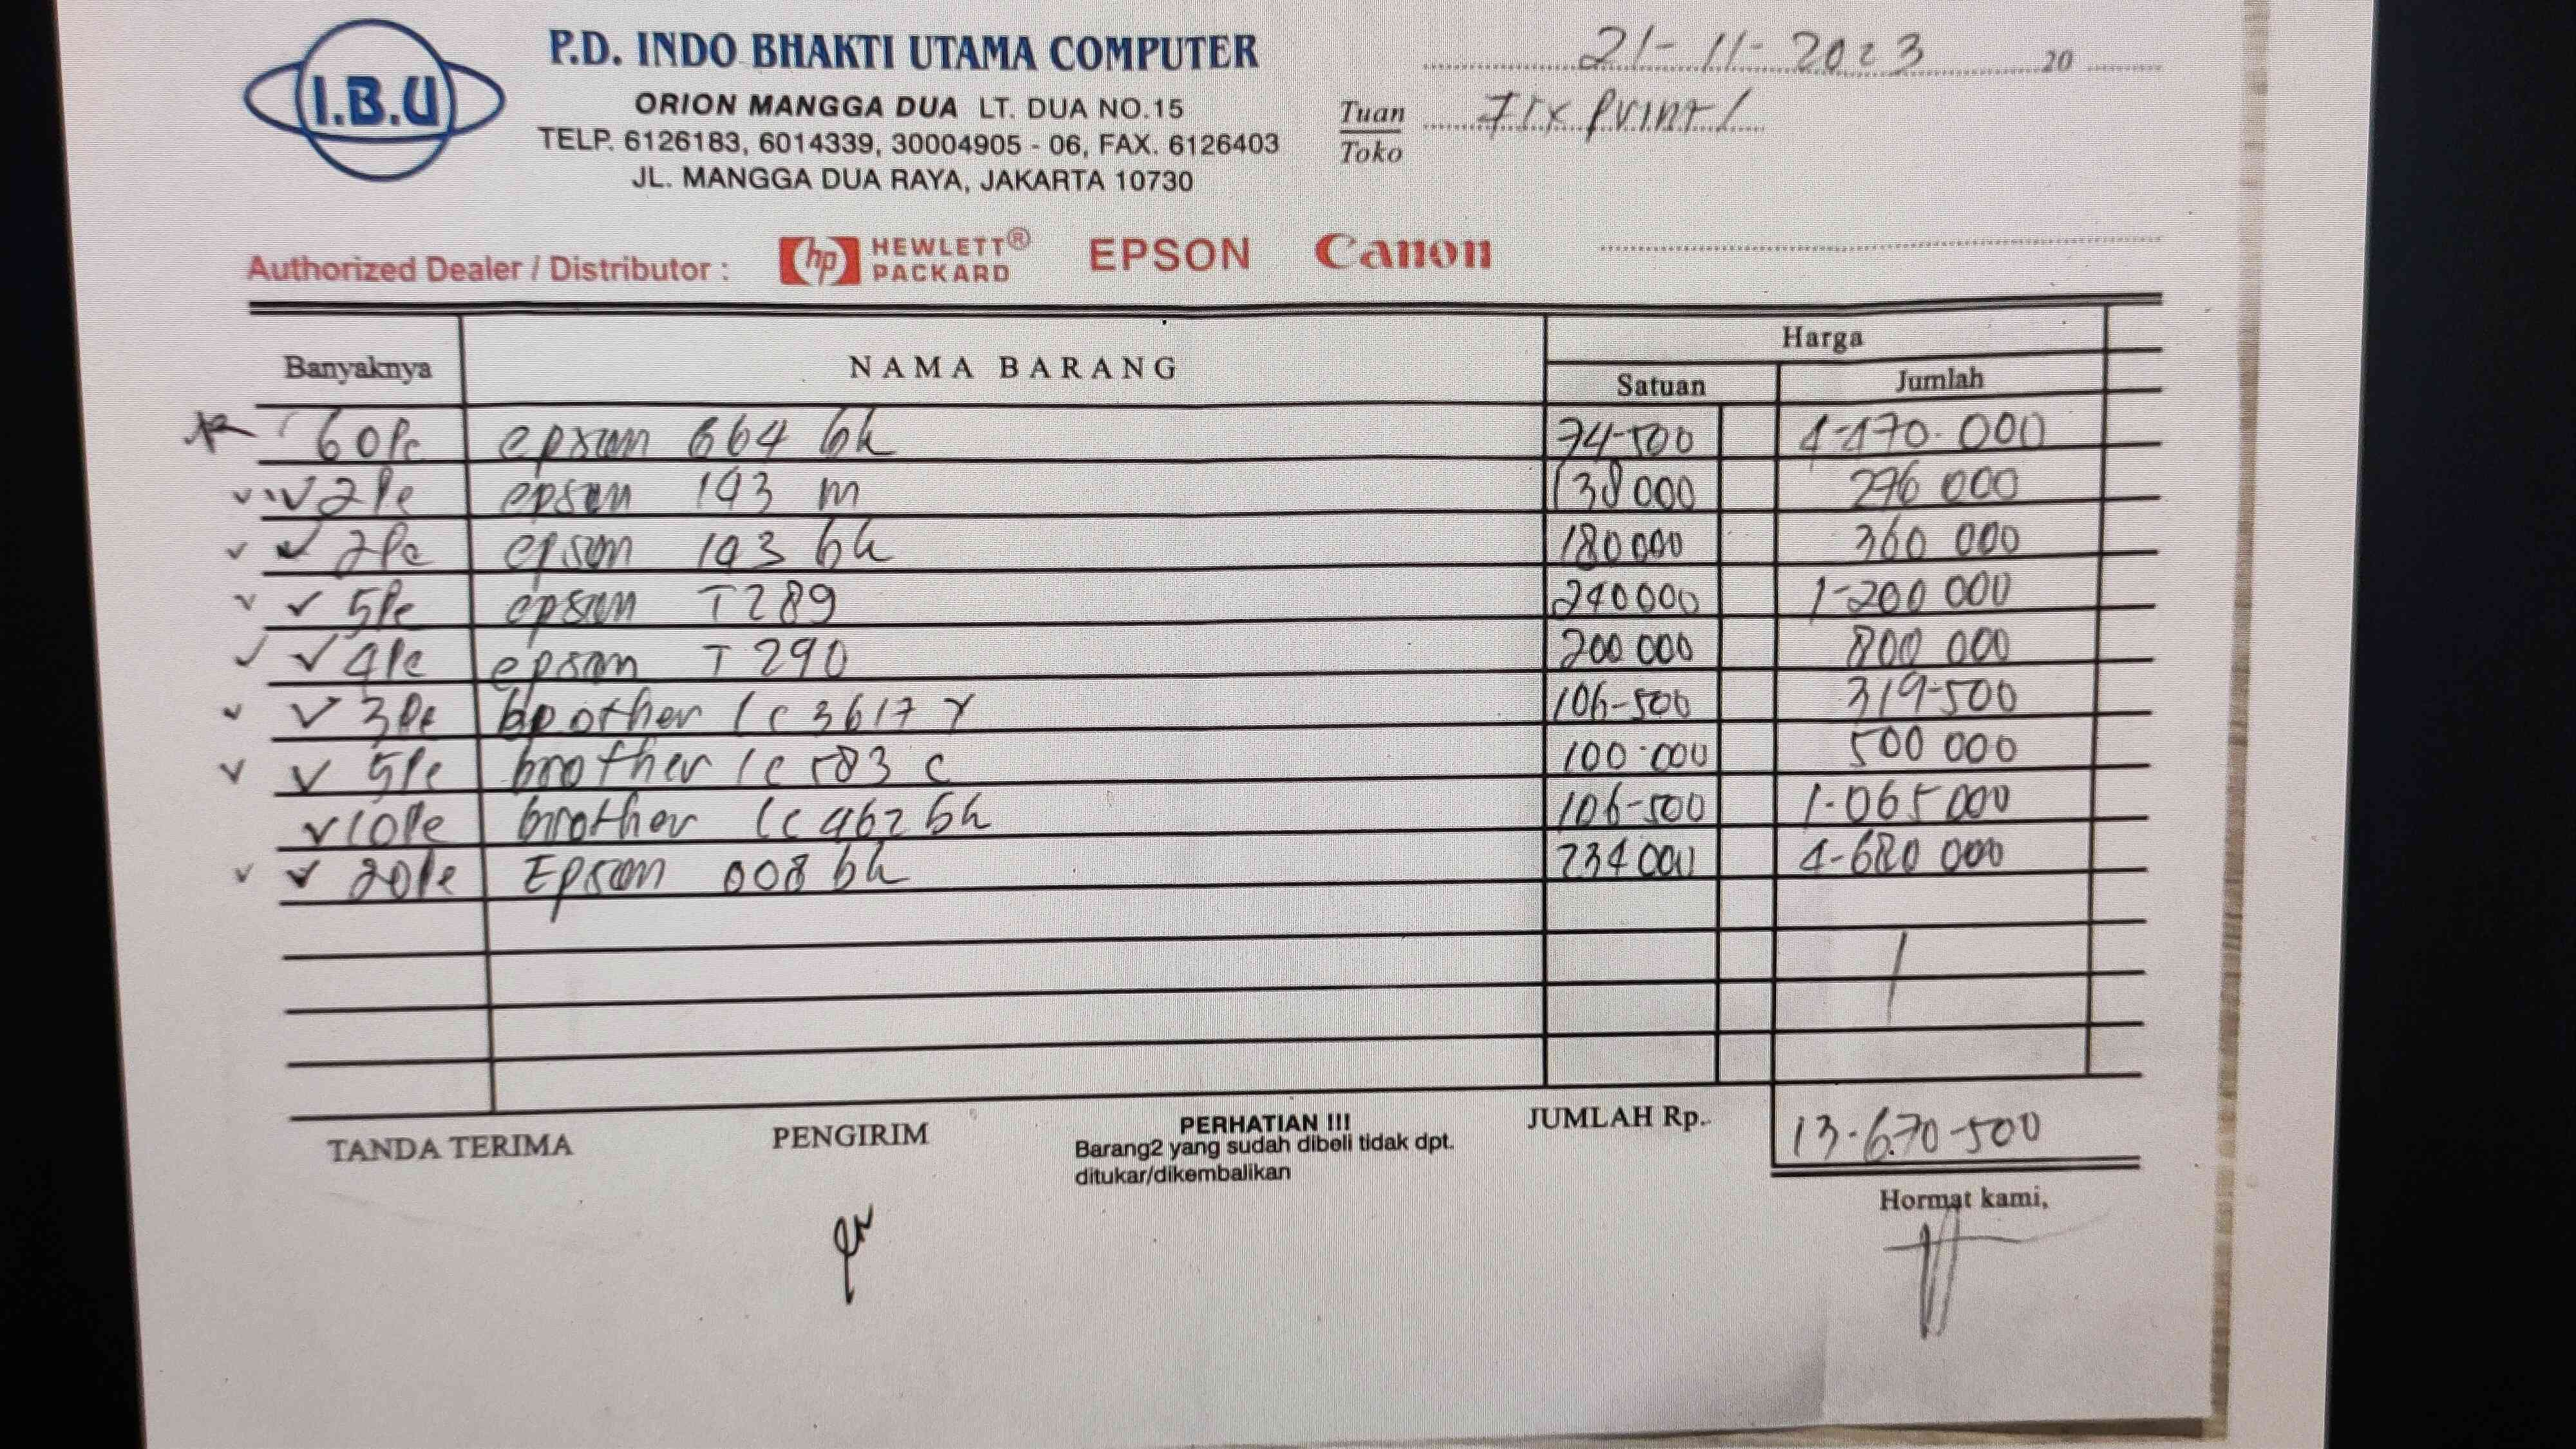 I.B.U
P.D. INDO BHAKTI UTAMA COMPUTER
ORION MANGGA DUA LT. DUA NO.15
TELP. 6126183, 6014339, 30004905 - 06, FAX. 6126403
JL. MANGGA DUA RAYA, JAKARTA 10730
21-11-2023 20
Tuan
Toko
Fix Print /
Authorized Dealer / Distributor : hp HEWLETT® PACKARD EPSON Canon
Banyaknya NAMA BARANG Harga
Satuan Jumlah
60Pc epson 664 bk 74-500 4-470.000
2Pc epson 193 m 138 000 276 000
2Pc epson 193 bk 180 000 360 000
5Pc epson T289 240 000 1-200 000
4Pc epson T290 200 000 800 000
3Pc brother lc 3617 Y 106-500 319-500
5Pc brother lc 583 c 100.000 500 000
10Pc brother lc 462 bk 106-500 1-065 000
20Pc Epson 008 bk 234 000 4-680 000
JUMLAH Rp. 13.670-500
TANDA TERIMA PENGIRIM
PERHATIAN !!!
Barang2 yang sudah dibeli tidak dpt.
ditukar/dikembalikan
Hormat kami,